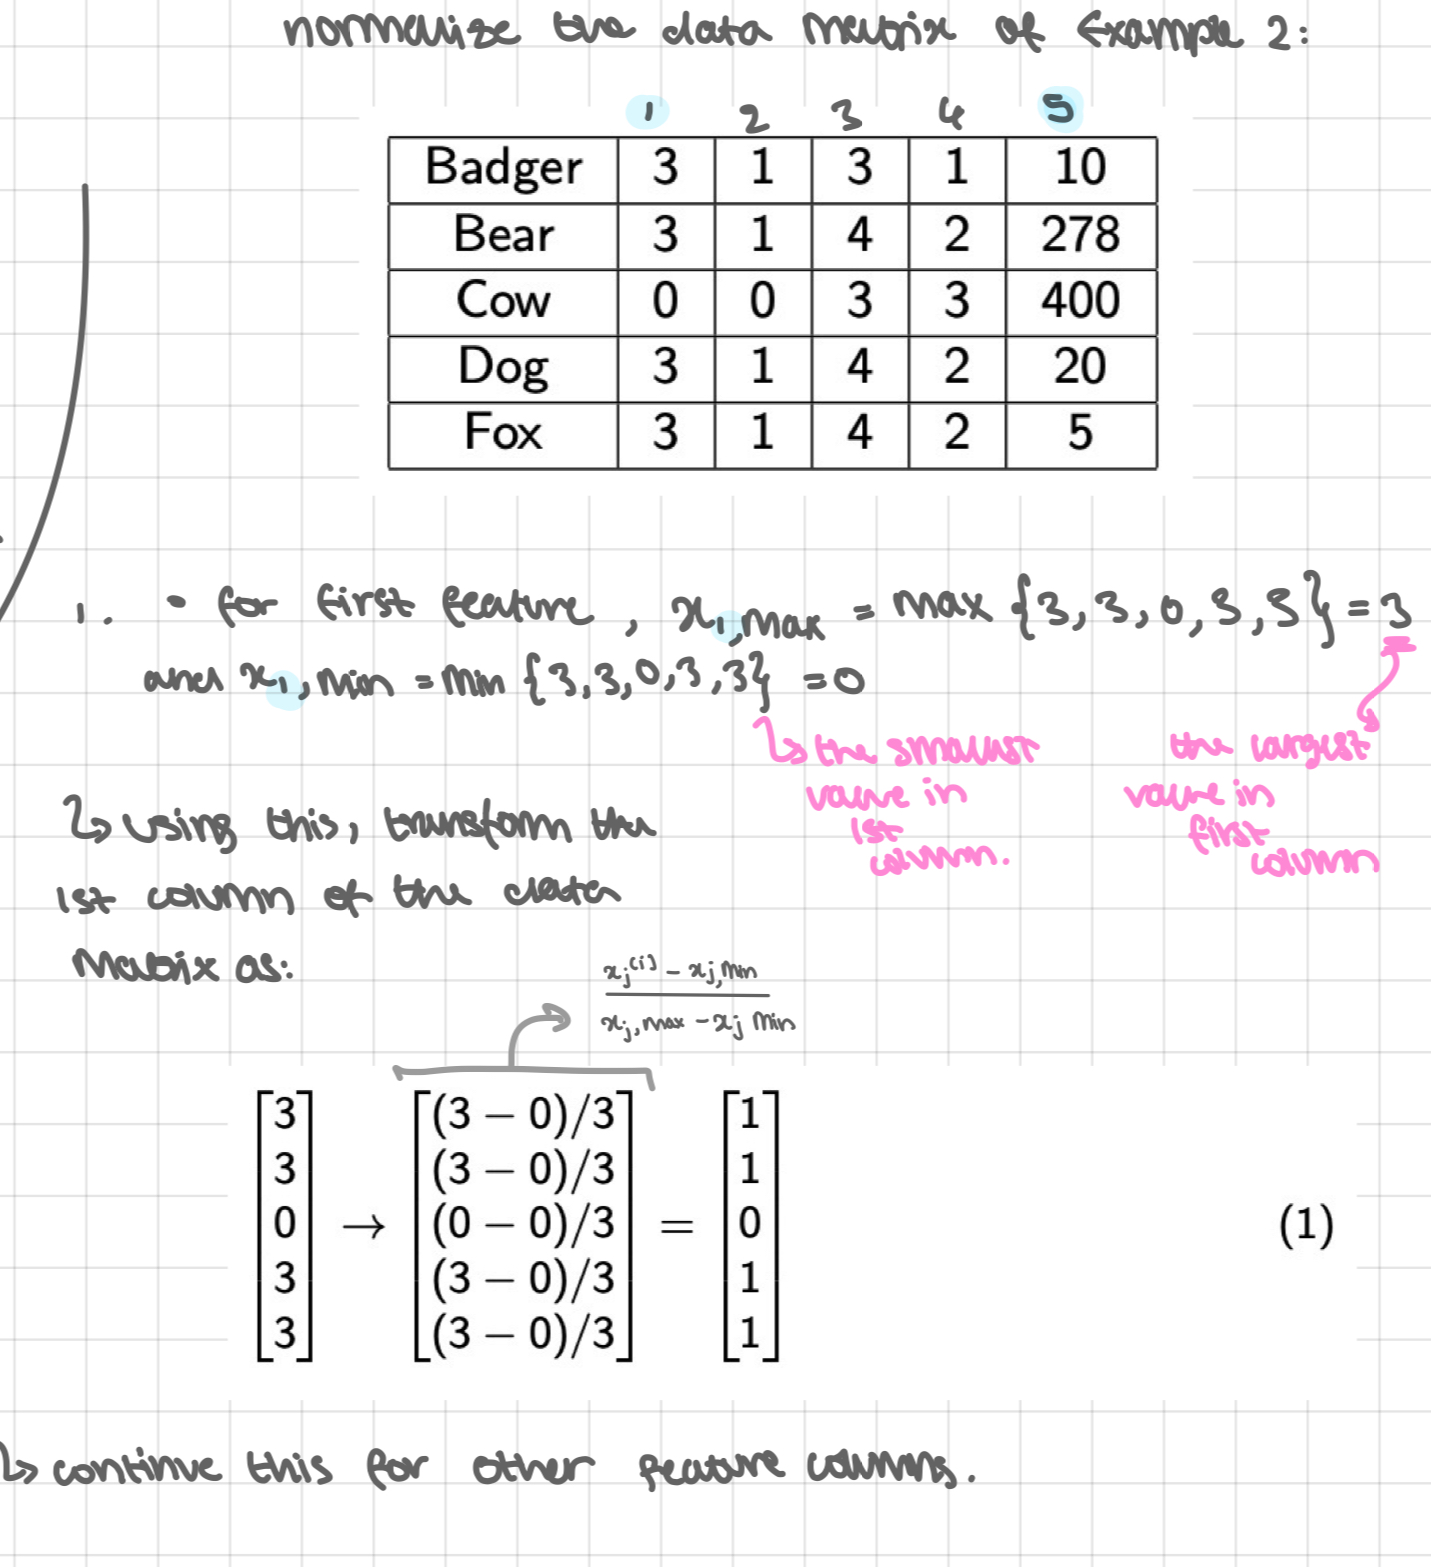 normalize the data matrix of Example 2:
1 2 3 4 5
Badger 3 1 3 1 10
Bear 3 1 4 2 278
Cow 0 0 3 3 400
Dog 3 1 4 2 20
Fox 3 1 4 2 5
1. • for first feature, x₁,max = max {3,3,0,3,3} = 3
and x₁,min = min {3,3,0,3,3} = 0
↳ the smallest value in 1st column.
the largest value in first column
↳ using this, transform the
1st column of the data
matrix as:
xj⁽ⁱ⁾ - xj,min
xj,max - xj min
[3] [(3 − 0)/3] [1]
[3] [(3 − 0)/3] [1]
[0] → [(0 − 0)/3] = [0] (1)
[3] [(3 − 0)/3] [1]
[3] [(3 − 0)/3] [1]
↳ continue this for other feature columns.